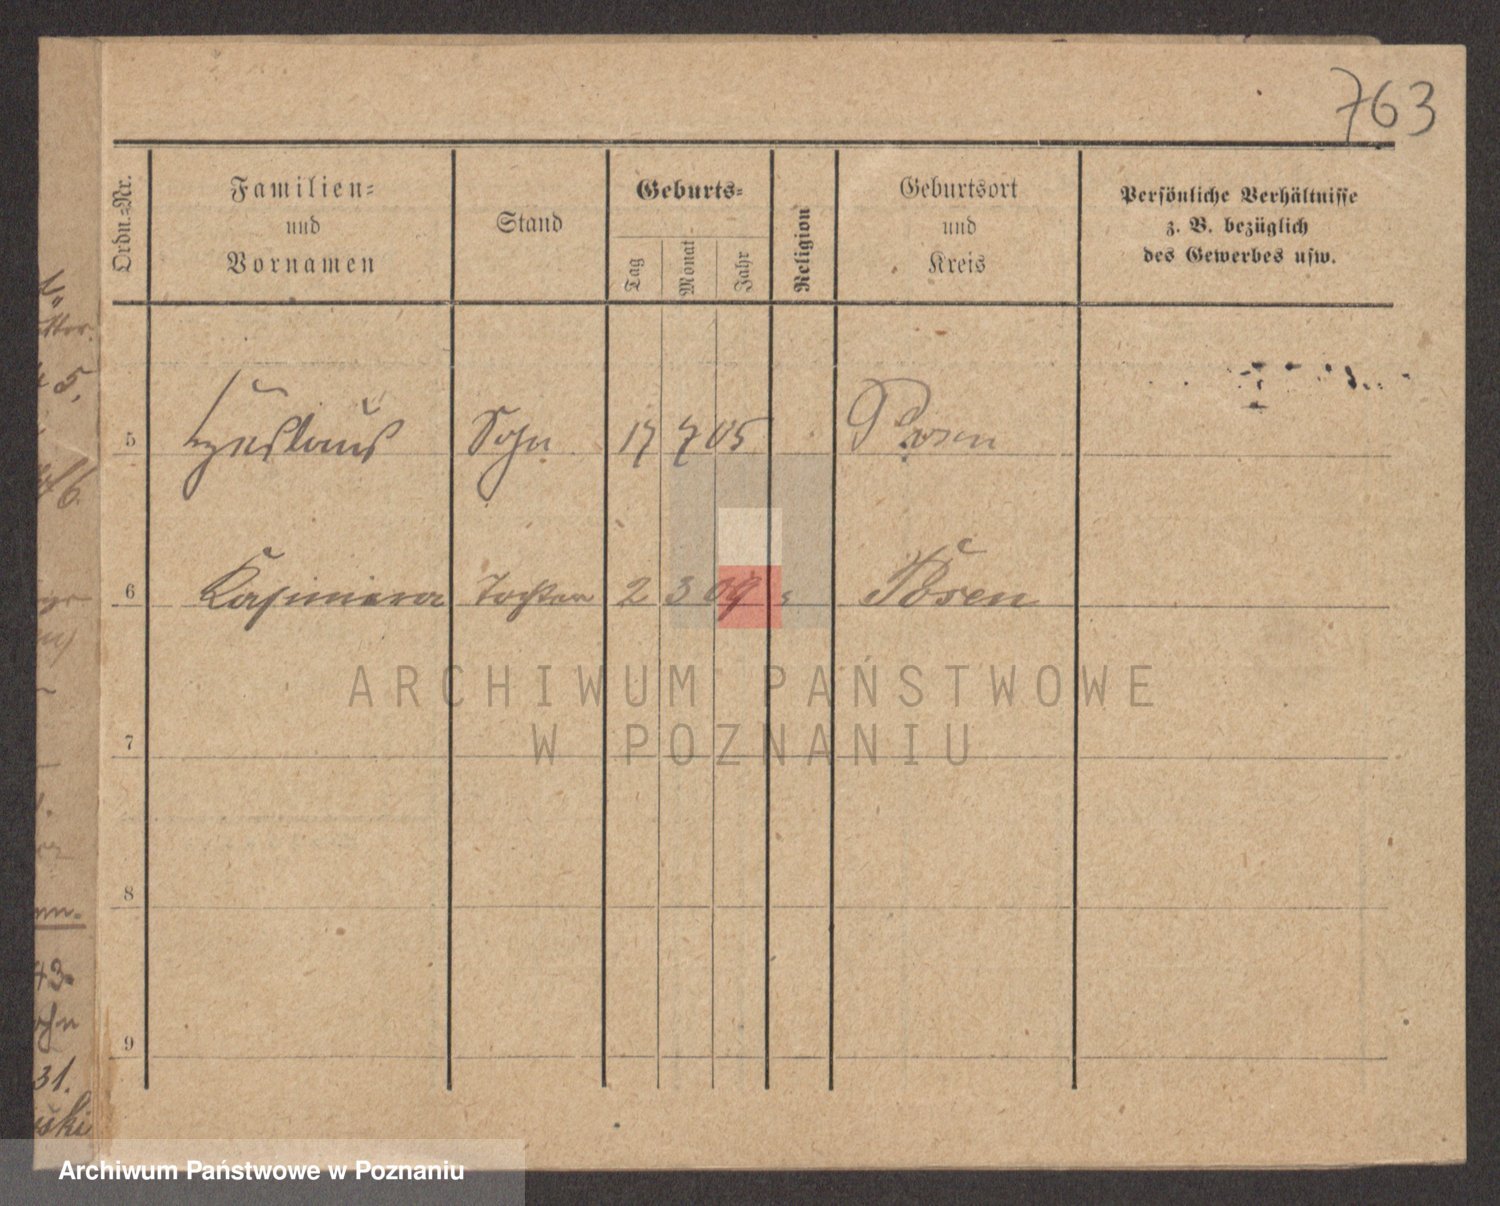 763
Ordn.=Nr.
Familien=
und
Vornamen
Stand
Geburts=
Tag
Monat
Jahr
Religion
Geburtsort
und
Kreis
Persönliche Verhältnisse
z. B. bezüglich
des Gewerbes usw.
5 Sohn 17 7 05 Posen
6 Kasimira Tochter 2 3 09 Posen
7
8
9
5.
6.
43.
31.
ARCHIWUM PAŃSTWOWE
W POZNANIU
Archiwum Państwowe w Poznaniu